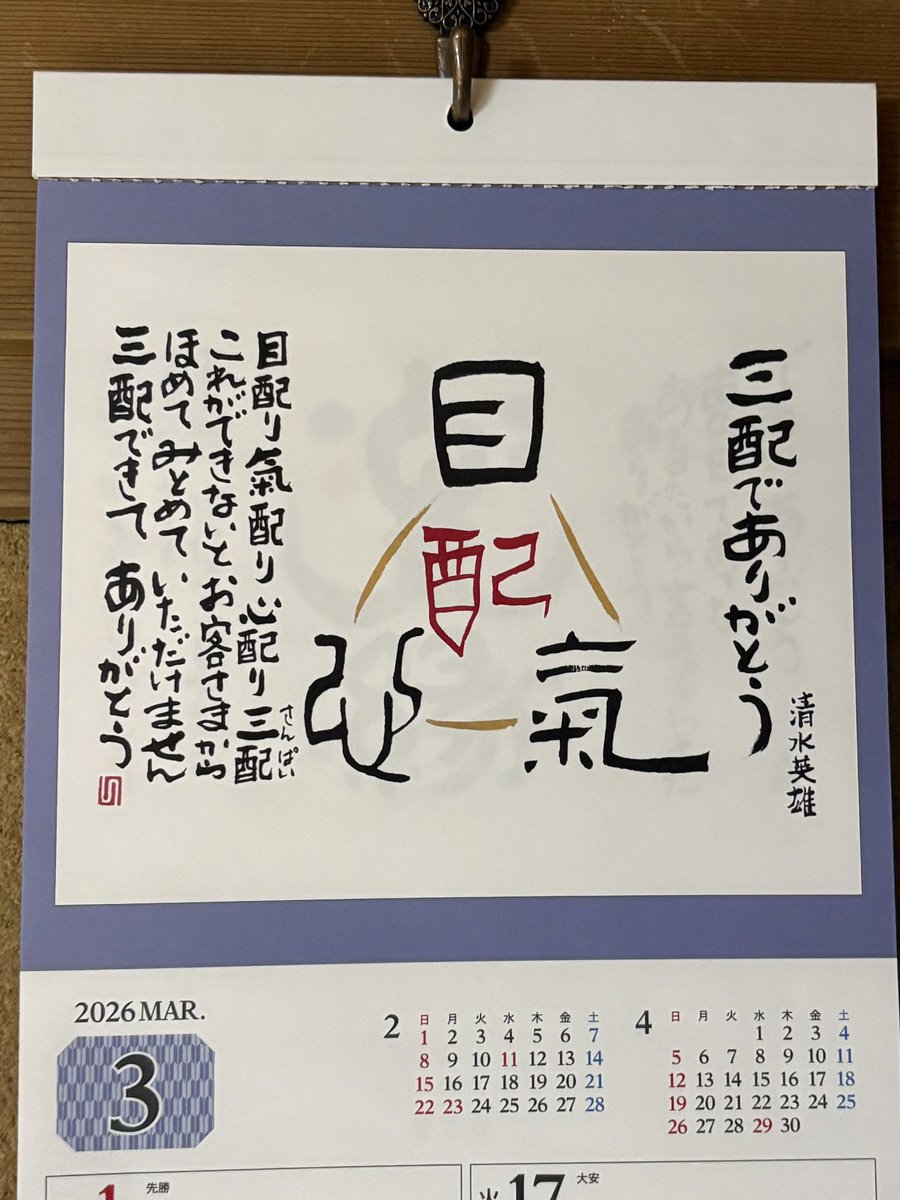 三配でありがとう
清水英雄
目
配
心
氣
目配り氣配り心配り三配
さんぱい
これができないとお客さまから
ほめてみとめていただけません
三配できて ありがとう
2026 MAR.
3
2
日 月 火 水 木 金 土
1 2 3 4 5 6 7
8 9 10 11 12 13 14
15 16 17 18 19 20 21
22 23 24 25 26 27 28
4
日 月 火 水 木 金 土
1 2 3 4
5 6 7 8 9 10 11
12 13 14 15 16 17 18
19 20 21 22 23 24 25
26 27 28 29 30
1 先勝
火 17 大安